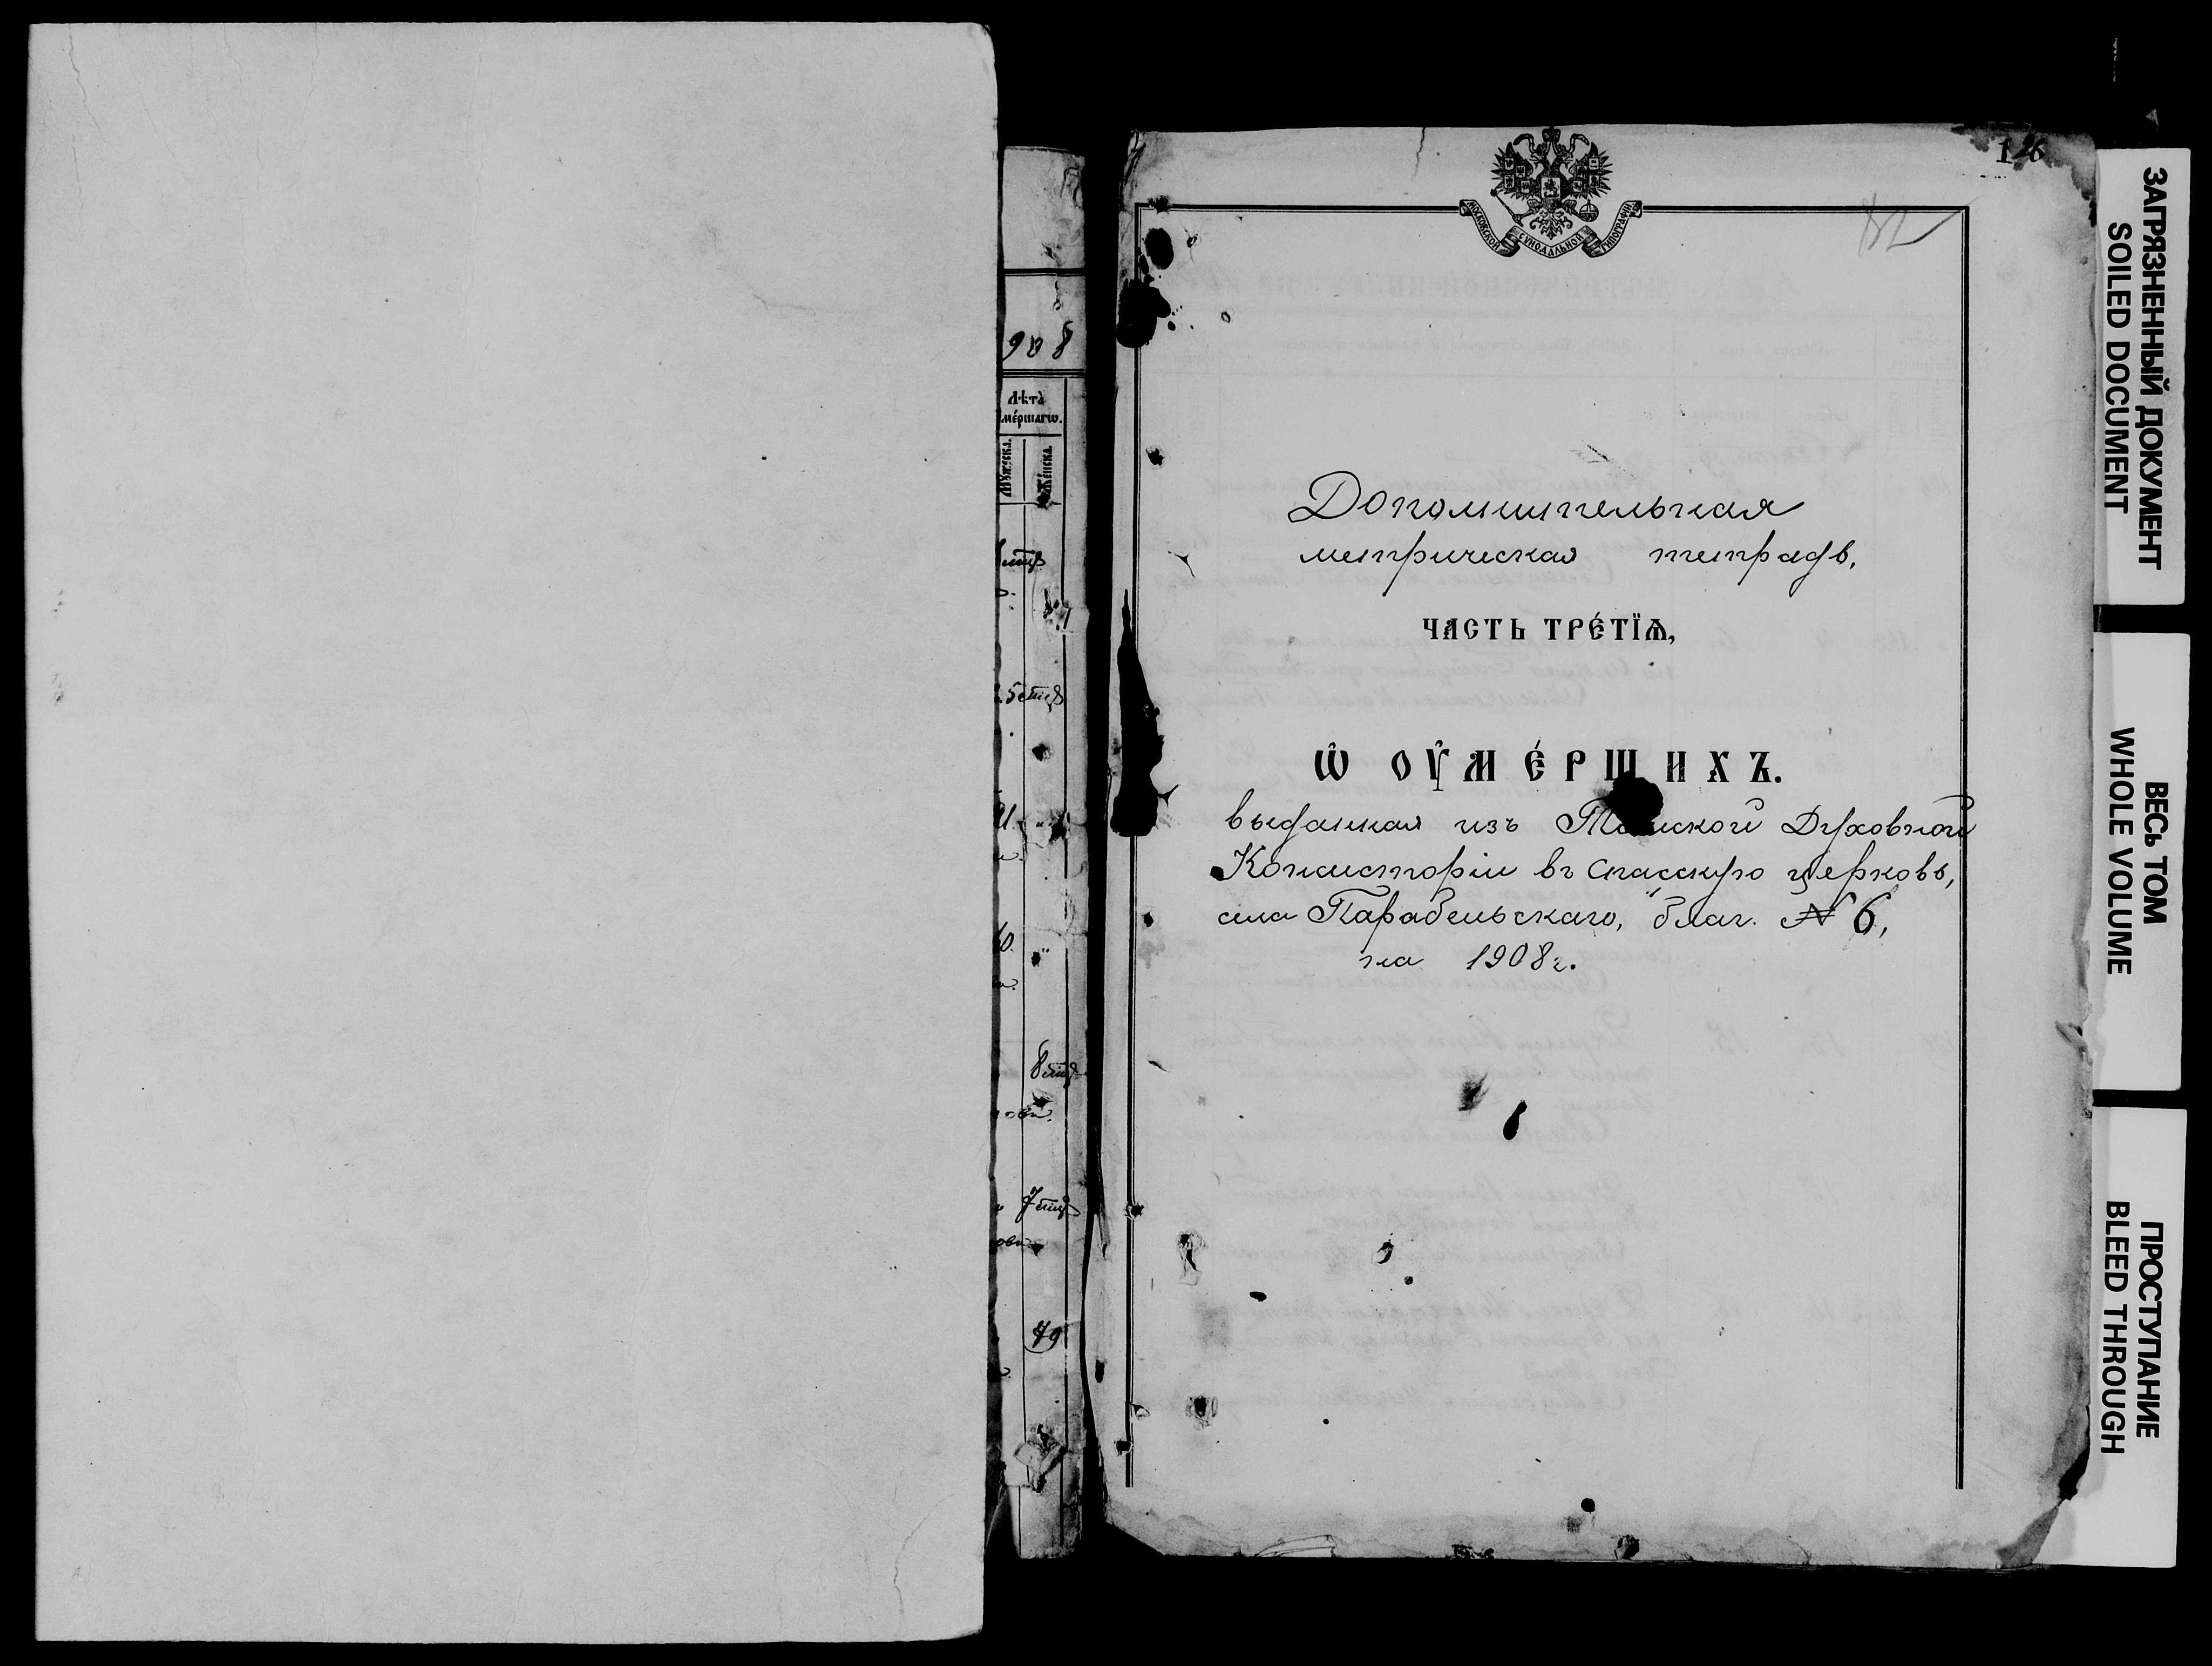 908
Лѣта
мéршагѡ.
Мꙋжеска
Женска
5 лѣтъ
8 лѣтъ
7 лѣтъ
49
126
82
МОСКОВСКОЙ СѴНОДАЛЬНОЙ ТИПОГРАФІИ
Дополнительная
метрическая тетрадь.
ЧАСТЬ ТРЕ́ТЇѦ,
Ѡ ОУ҆МЕ́РШИХЪ.
выданная изъ Томской Духовной
Консисторіи въ Спасскую церковь,
села Парабельскаго, благ. № 6,
на 1908 г.
ЗАГРЯЗНЕННЫЙ ДОКУМЕНТ
SOILED DOCUMENT
ВЕСЬ ТОМ
WHOLE VOLUME
ПРОСТУПАНИЕ
BLEED THROUGH